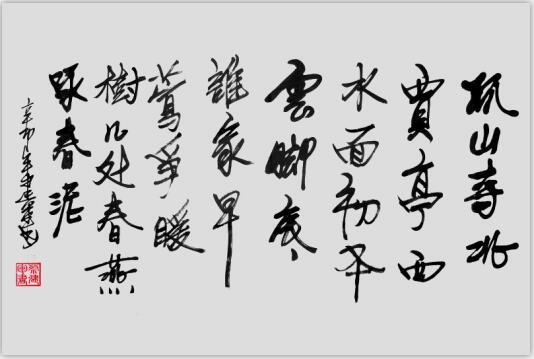 孤山寺北
賈亭西
水面初平
雲脚底
誰家早
鶯爭暖
樹几处春燕
啄春泥
辛卯年